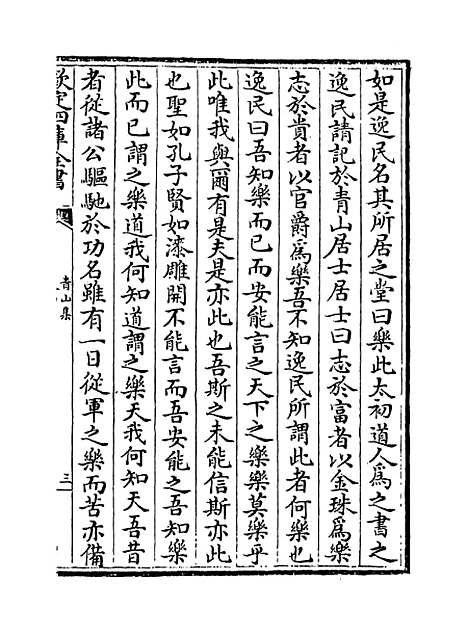 如是逸民名其所居之堂曰樂此太初道人為之書之
逸民請記於青山居士居士曰志於富者以金珠為樂
志於貴者以官爵為樂吾不知逸民所謂此者何樂也
逸民曰吾知樂而已而安能言之天下之樂樂莫樂乎
此唯我與爾有是夫是亦此也吾斯之未能信斯亦此
也聖如孔子賢如漆雕開不能言而吾安能之吾知樂
此而已謂之樂道我何知道謂之樂天我何知天吾昔
者從諸公驅馳於功名雖有一日從軍之樂而苦亦備
欽定四庫全書
青山集
三